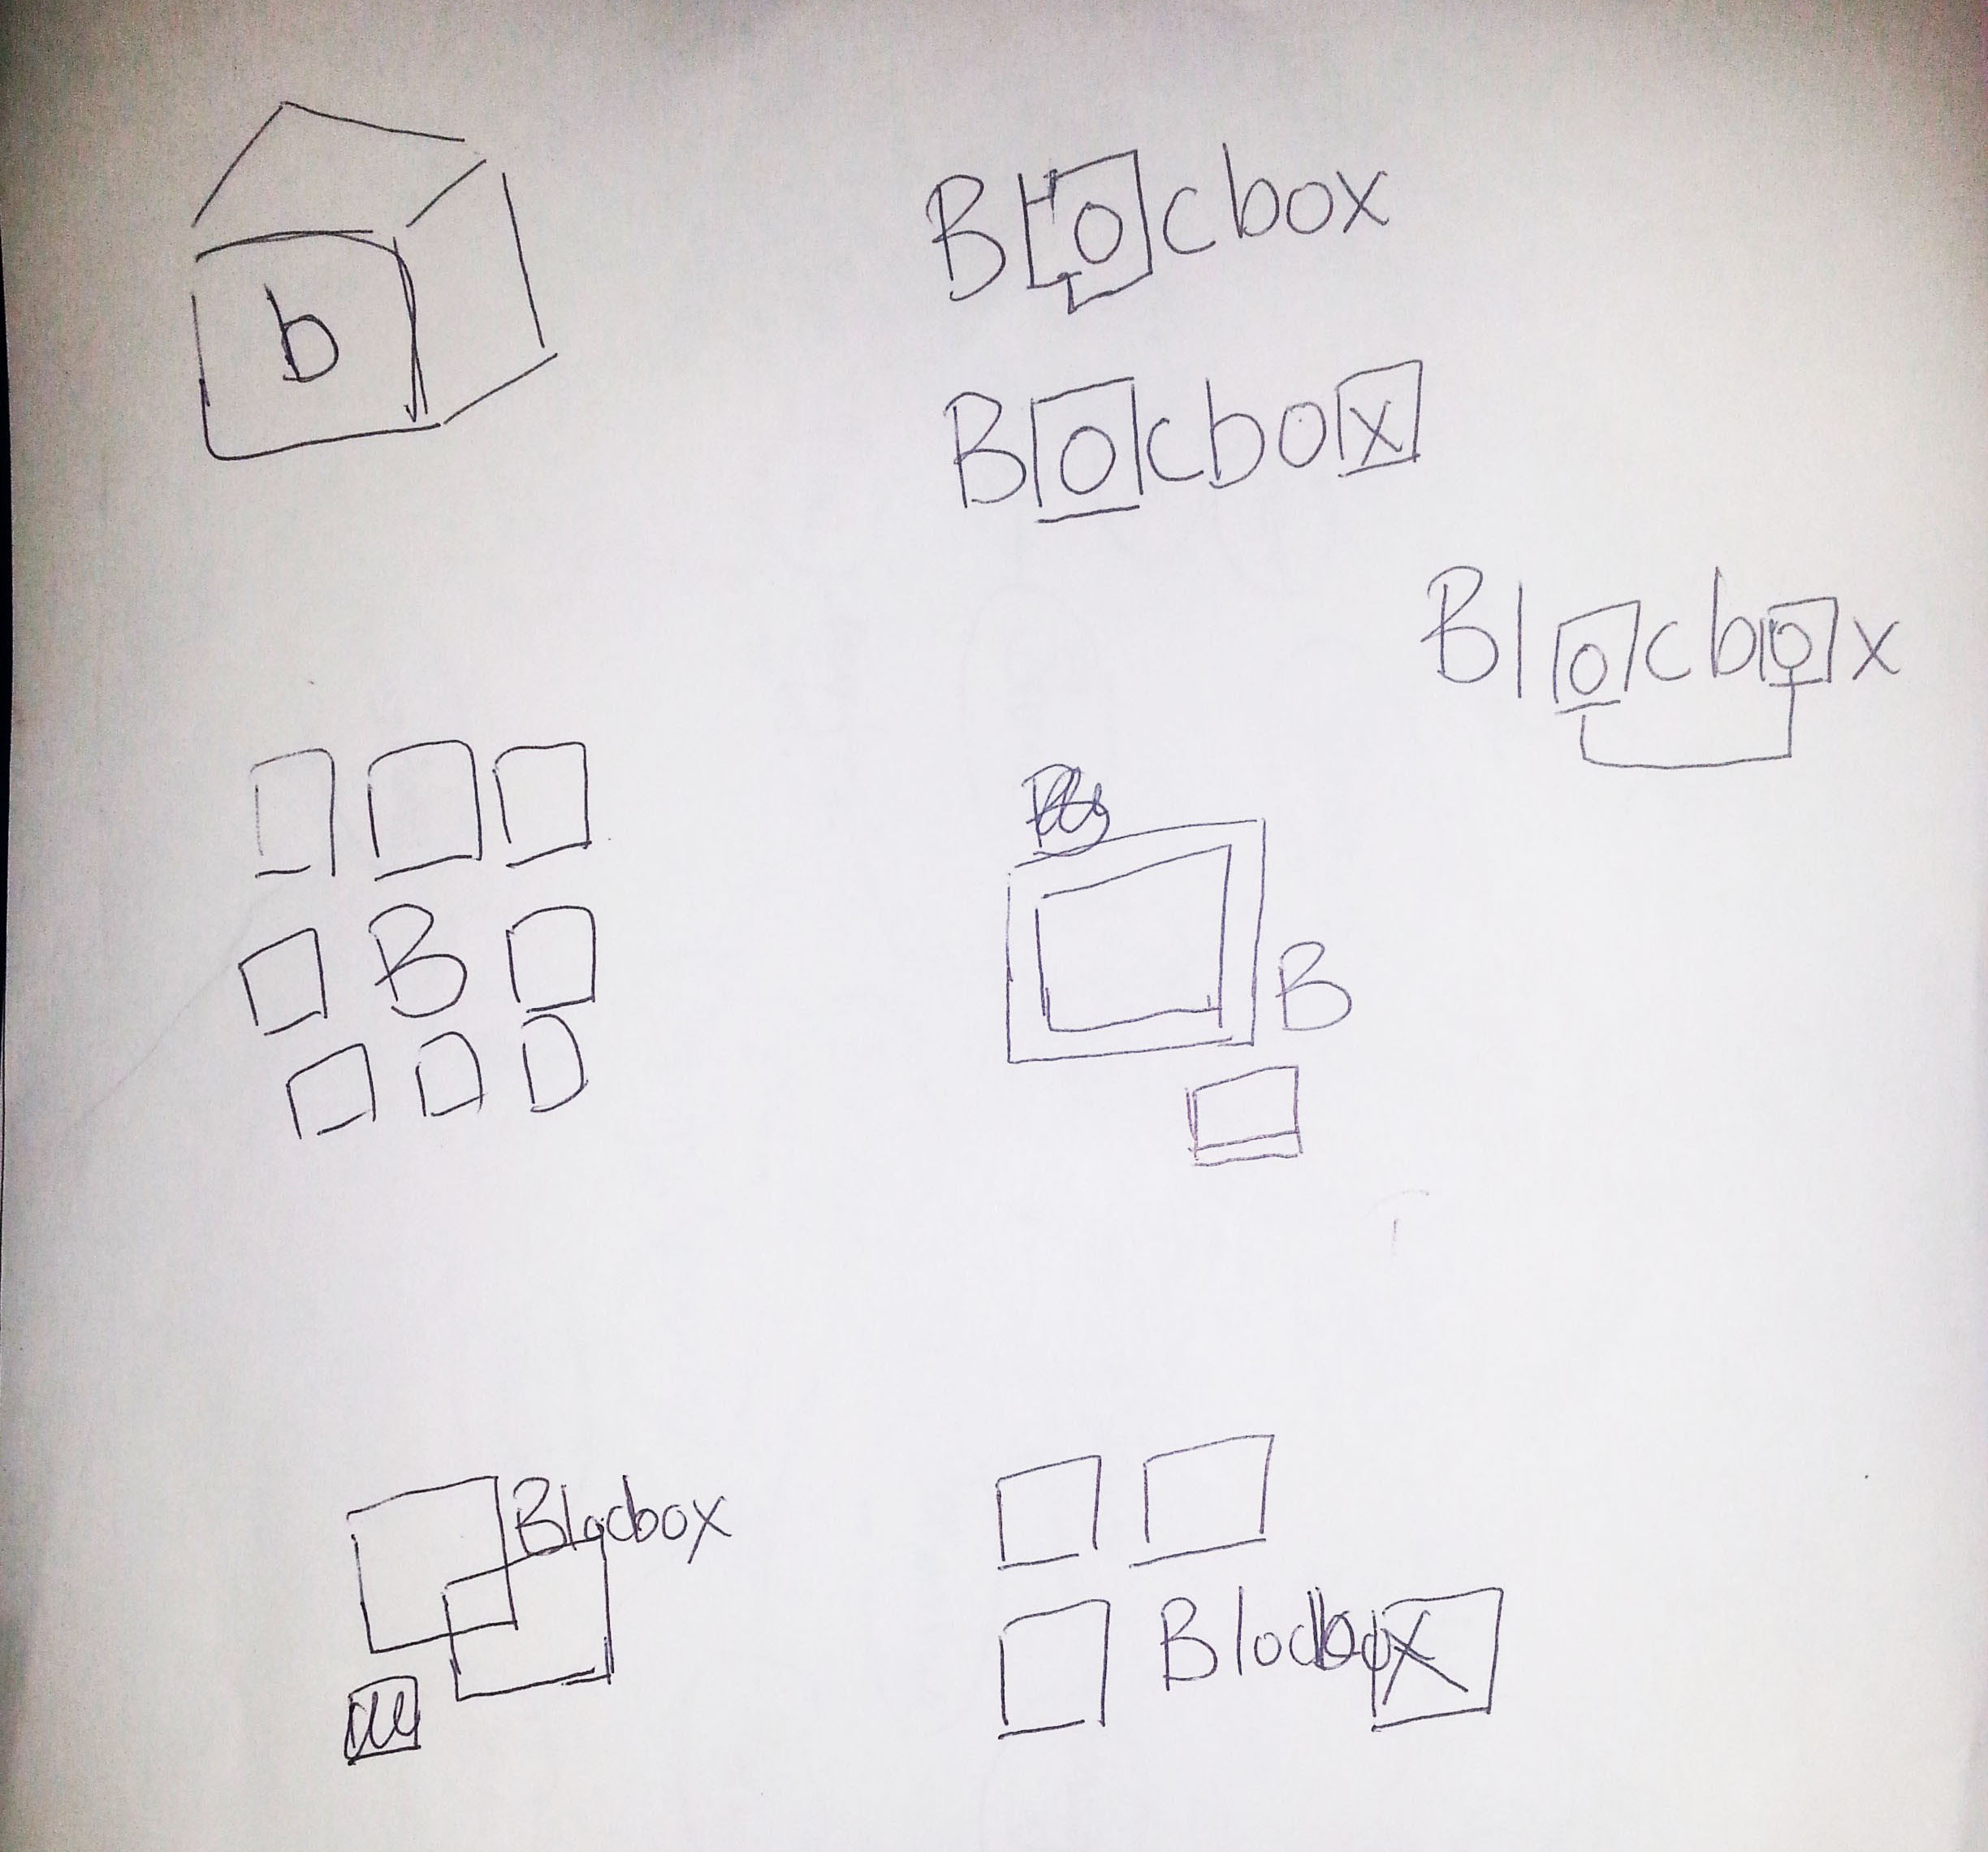 b
Blocbox
Blocbox
Blocbox
B
B
Blocbox
Blocbox